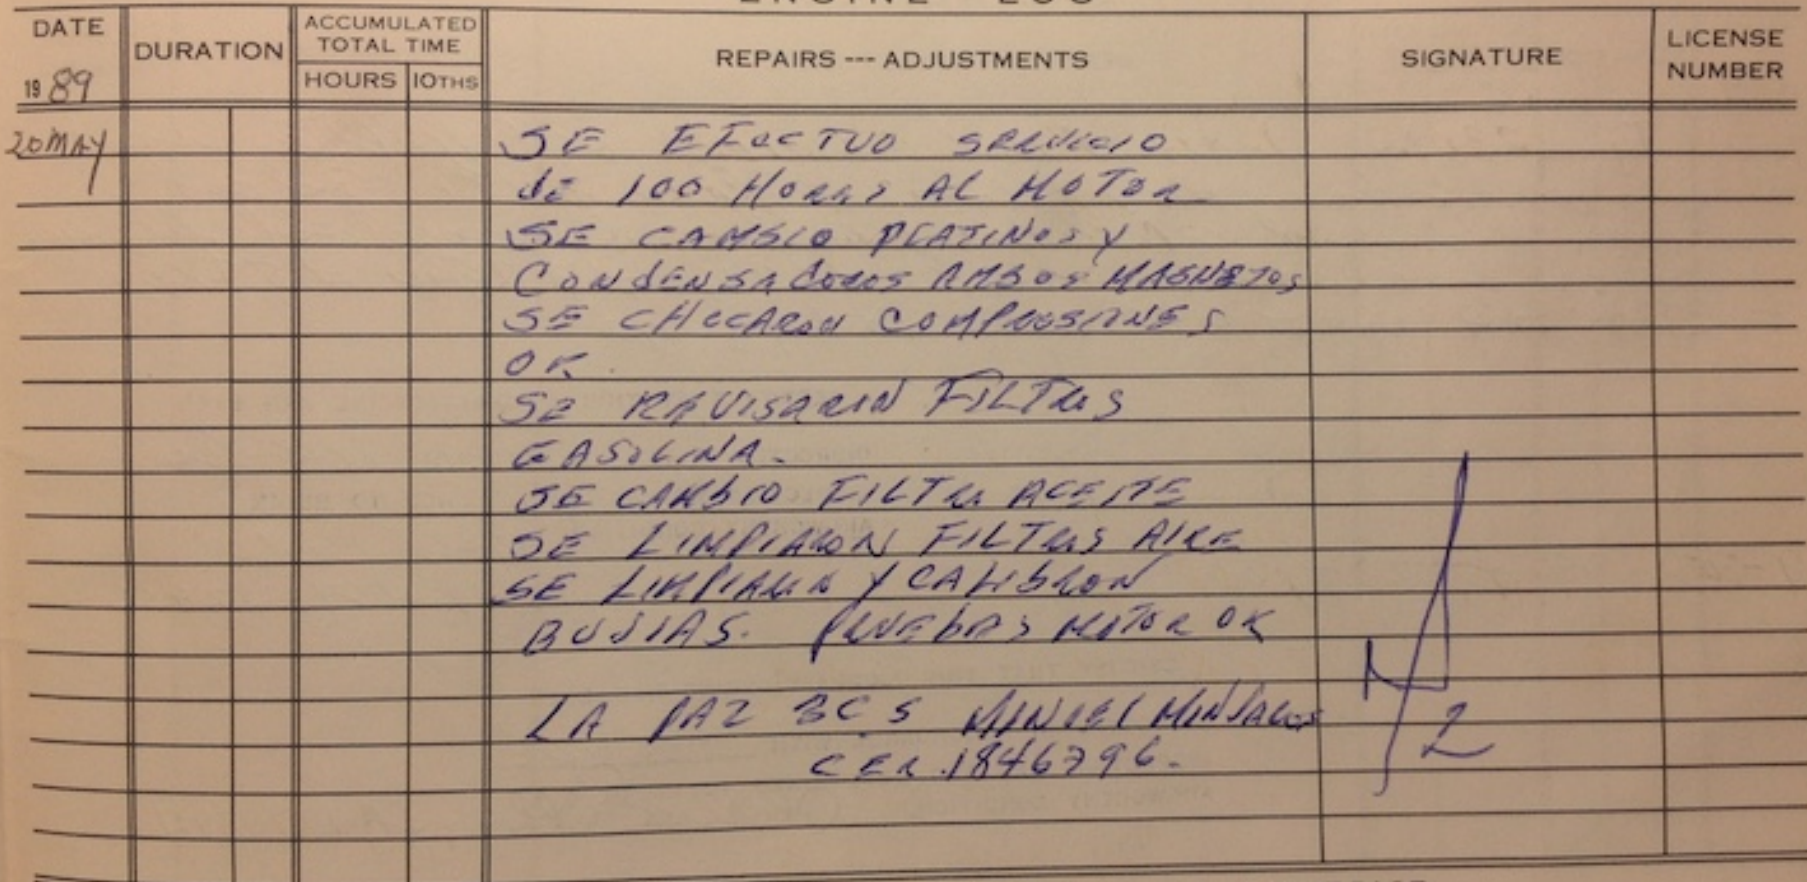 ENGINE LOG
DATE
1989
DURATION
ACCUMULATED
TOTAL TIME
HOURS 10THS
REPAIRS --- ADJUSTMENTS
SIGNATURE
LICENSE
NUMBER
20 MAY
SE EFECTUO SERVICIO
de 100 HORAS AL MOTOR
SE CAMBIO PLATINOS Y
CONDENSADORES AMBOS MAGNETOS
SE CHECARON COMPRESIONES
OK.
SE REVISARON FILTROS
GASOLINA.
SE CAMBIO FILTRO ACEITE
SE LIMPIARON FILTROS AIRE
SE LIMPIARON Y CALIBRON
BUJIAS. PRUEBAS MOTOR OK
LA PAZ BCS
CER.1846796.